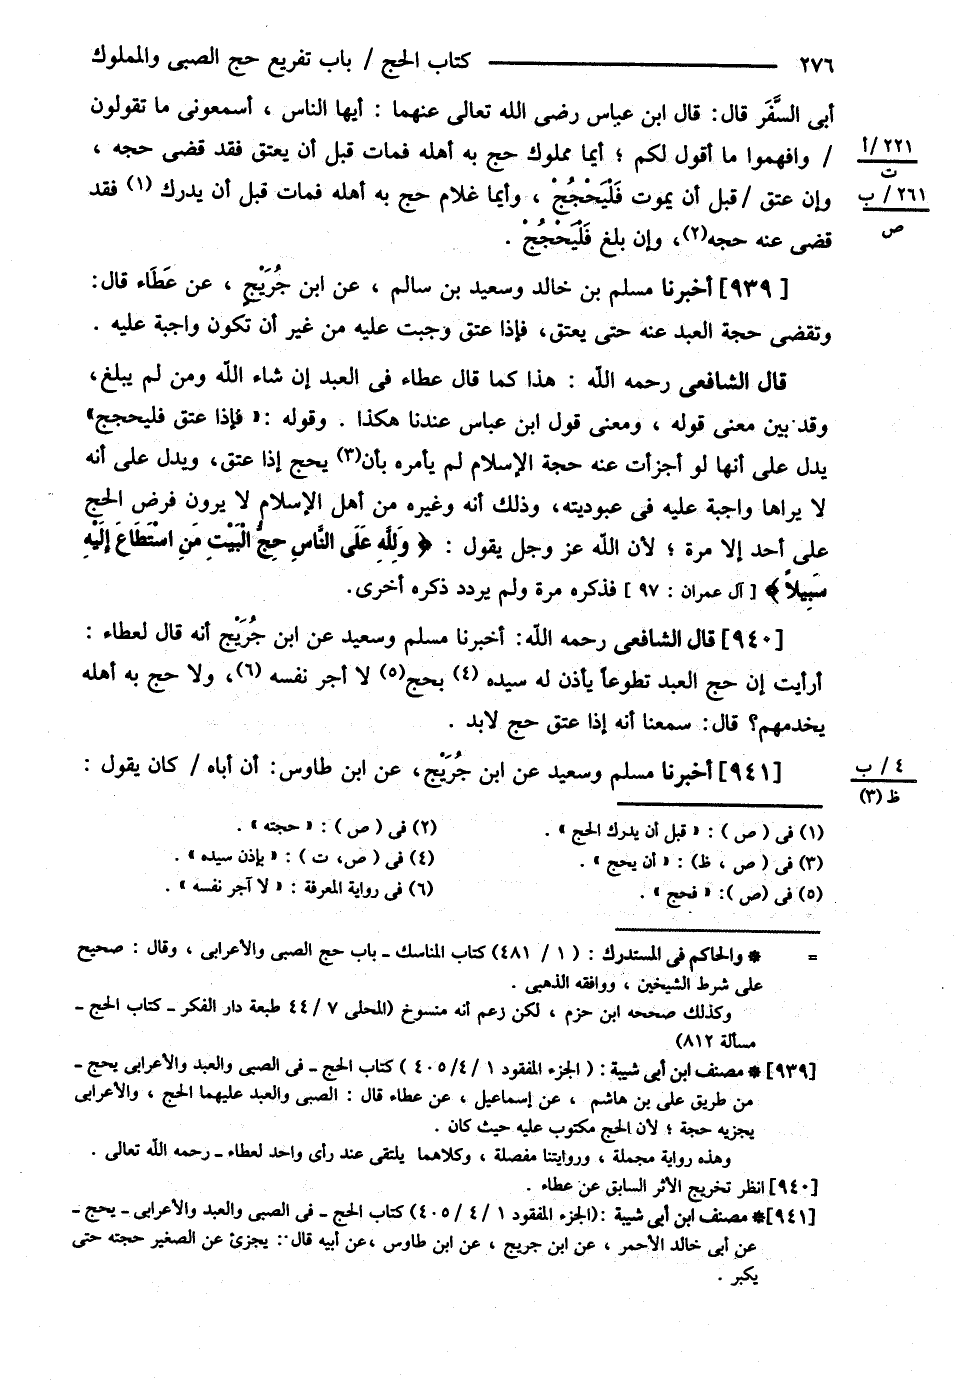 ٢٧٦ ــــــــــــــــــــ كتاب الحج / باب تفريع حج الصبى والمملوك
أبى السَّفَر قال: قال ابن عباس رضى الله تعالى عنهما : أيها الناس ، أسمعونى ما تقولون
٢٢١/أ
ت
/ وافهموا ما أقول لكم ؛ أيما مملوك حج به أهله فمات قبل أن يعتق فقد قضى حجه ،
٢٦١/ ب
ص
وإن عتق /قبل أن يموت فَلْيَحْجُجْ ، وأيما غلام حج به أهله فمات قبل أن يدرك (١) فقد
قضى عنه حجه(٢)، وإن بلغ فَلْيَحْجُجْ .
[ ٩٣٩] أخبرنا مسلم بن خالد وسعيد بن سالم ، عن ابن جُرَيْجٍ ، عن عَطَاء قال:
وتقضى حجة العبد عنه حتى يعتق، فإذا عتق وجبت عليه من غير أن تكون واجبة عليه .
قال الشافعى رحمه الله : هذا كما قال عطاء فى العبد إن شاء الله ومن لم يبلغ،
وقد بين معنى قوله ، ومعنى قول ابن عباس عندنا هكذا . وقوله :« فإذا عتق فليحجج»
يدل على أنها لو أجزأت عنه حجة الإسلام لم يأمره بأن(٣) يحج إذا عتق، ويدل على أنه
لا يراها واجبة عليه فى عبوديته، وذلك أنه وغيره من أهل الإسلام لا يرون فرض الحج
على أحد إلا مرة ؛ لأن الله عز وجل يقول : ﴿ وَلِلَّهِ عَلَى النَّاسِ حِجُّ الْبَيْتِ مَنِ اسْتَطَاعَ إِلَيْهِ
سَبِيلاً ﴾ [ آل عمران : ٩٧ ] فذكره مرة ولم يردد ذكره أخرى.
[٩٤٠] قال الشافعى رحمه الله: أخبرنا مسلم وسعيد عن ابن جُرَيْج أنه قال لعطاء :
أرأيت إن حج العبد تطوعاً يأذن له سيده (٤) بحج(٥) لا أجر نفسه (٦)، ولا حج به أهله
يخدمهم؟ قال: سمعنا أنه إذا عتق حج لابد .
[٩٤١] أخبرنا مسلم وسعيد عن ابن جُرَيْج، عن ابن طاوس: أن أباه / كان يقول :
٤ / ب
ظ (٣)
(١) فى ( ص ) : « قبل أن يدرك الحج » .
(٢) فى ( ص ) : « حجته » .
(٣) فى ( ص ، ظ) : « أن يحج » .
(٤) فى ( ص، ت ) : « بإذن سيده » .
(٥) فى (ص ): « فحج » .
(٦) فى رواية المعرفة : « لا آجر نفسه » .
= * والحاكم فى المستدرك : ( ١ / ٤٨١) كتاب المناسك ـ باب حج الصبى والأعرابى ، وقال : صحيح
على شرط الشيخين ، ووافقه الذهبى .
وكذلك صححه ابن حزم ، لكن زعم أنه منسوخ (المحلى ٧ /٤٤ طبعة دار الفكر ـ كتاب الحج ـ
مسألة ٨١٢)
[٩٣٩] * مصنف ابن أبى شيبة : ( الجزء المفقود ١ /٤/ ٤٠٥ ) كتاب الحج ـ فى الصبى والعبد والأعرابى يحج ـ
من طريق على بن هاشم ، عن إسماعيل ، عن عطاء قال : الصبى والعبد عليهما الحج ، والأعرابى
يجزيه حجة ؛ لأن الحج مكتوب عليه حيث كان .
وهذه رواية مجملة ، وروايتنا مفصلة ، وكلاهما يلتقى عند رأى واحد لعطاء ـ رحمه الله تعالى .
[٩٤٠] انظر تخريج الأثر السابق عن عطاء .
[٩٤١]* مصنف ابن أبى شيبة :(الجزء المفقود ١ /٤ / ٤٠٥) كتاب الحج ـ فى الصبى والعبد والأعرابى ـ يحج ـ
عن أبى خالد الأحمر ، عن ابن جريج ، عن ابن طاوس ،عن أبيه قال : يجزئ عن الصغير حجته حتى
يكبر .